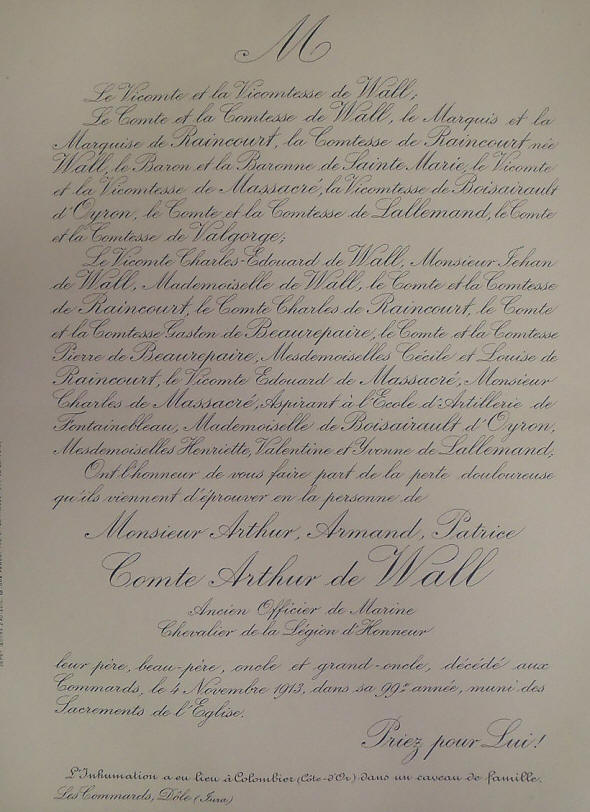 M
Le Vicomte et la Vicomtesse de Wall;
Le Comte et la Comtesse de Wall, le Marquis et la
Marquise de Raincourt, la Comtesse de Raincourt née
Wall, le Baron et la Baronne de Sainte Marie, le Vicomte
et la Vicomtesse de Massacré, la Vicomtesse de Boisairault
d'Oyron, le Comte et la Comtesse de Lallemand, le Comte
et la Comtesse de Valgorge;
Le Vicomte Charles-Edouard de Wall, Monsieur Jehan
de Wall, Mademoiselle de Wall, le Comte et la Comtesse
de Raincourt, le Comte Charles de Raincourt, le Comte
et la Comtesse Gaston de Beaurepaire, le Comte et la Comtesse
Pierre de Beaurepaire, Mesdemoiselles Cécile et Louise de
Raincourt, le Vicomte Edouard de Massacré, Monsieur
Charles de Massacré, Aspirant à l'Ecole d'Artillerie de
Fontainebleau, Mademoiselle de Boisairault d'Oyron,
Mesdemoiselles Henriette, Valentine et Yvonne de Lallemand;
Ont l'honneur de vous faire part de la perte douloureuse
qu'ils viennent d'éprouver en la personne de
Monsieur Arthur, Armand, Patrice
Comte Arthur de Wall
Ancien Officier de Marine
Chevalier de la Légion d'Honneur
leur père, beau-père, oncle et grand-oncle, décédé aux
Commards, le 4 Novembre 1913, dans sa 99e année, muni des
Sacrements de l'Eglise.
Priez pour Lui!
L'Inhumation a eu lieu à Colombier (Côte-d'Or) dans un caveau de famille.
Les Commards, Dôle (Jura)